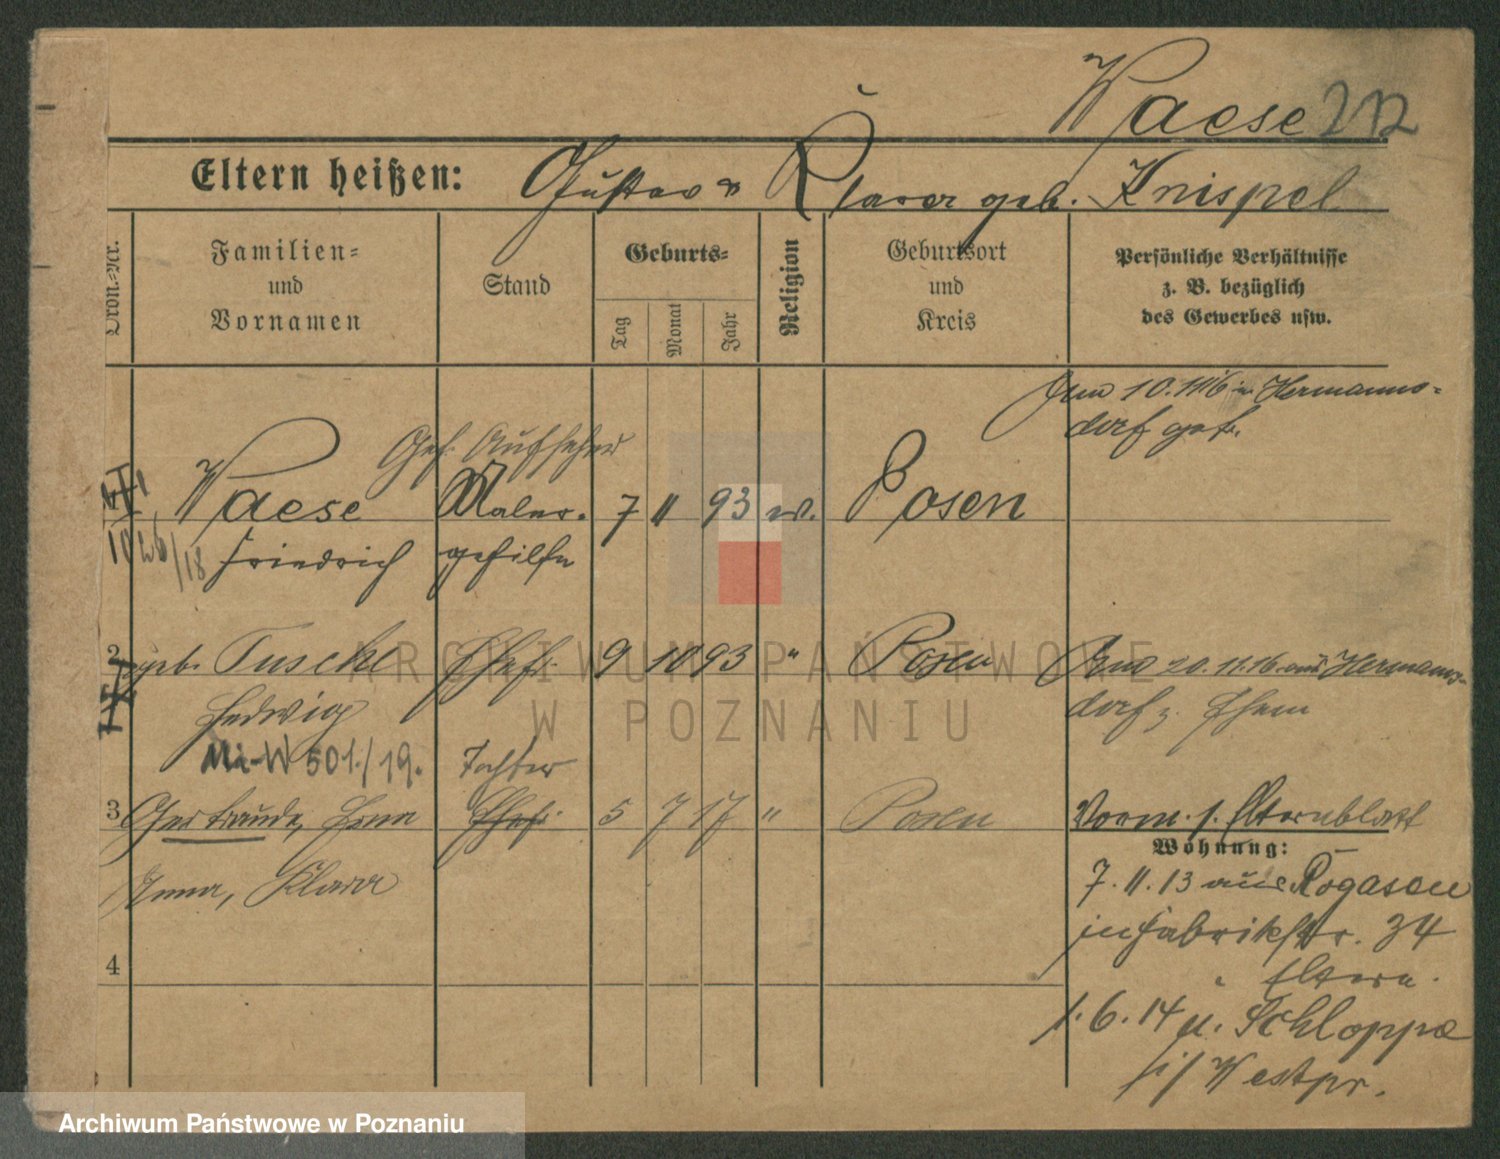 Waese 212
Eltern heißen: Gustav u Klara geb. Knispel
Oron.-Nr.
Familien-
und
Vornamen
Stand
Geburts-
Tag
Monat
Jahr
Religion
Geburtsort
und
Kreis
Persönliche Verhältnisse
z. B. bezüglich
des Gewerbes usw.
10.11.16 in Hermanns-
dorf getr.
Gef. Aufseher
Waese Maler- 7 11 93 ev. Posen
Friedrich gehilfe
2 geb. Tuschke Ehefr. 9 10 93 " Posen 20.11.16 aus Hermanns-
Hedwig dorf z. Ehem
Mi-W 501./19. Tochter
3 Gertraude, Erna Ehefr. 5 7 17 " Posen Vorm. s. Elternblatt
Wohnung:
Anna, Klara 7.11.13 aus Rogasen
in Fabrikstr. 34
4 Eltern.
1.6.14 n. Schloppe
i/ Westpr.
ARCHIWUM PAŃSTWOWE
W POZNANIU
Archiwum Państwowe w Poznaniu